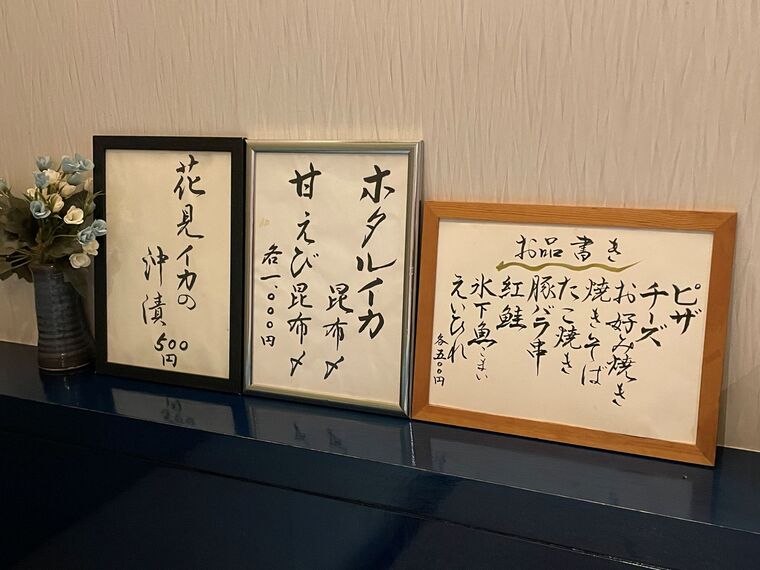 花見イカの
沖漬
500円
ホタルイカ
昆布〆
甘えび昆布〆
各一、〇〇〇円
お品書き
ピザ
チーズ
お好み焼き
焼きそば
たこ焼き
豚バラ串
紅鮭
氷下魚こまい
えいひれ
各五〇〇円